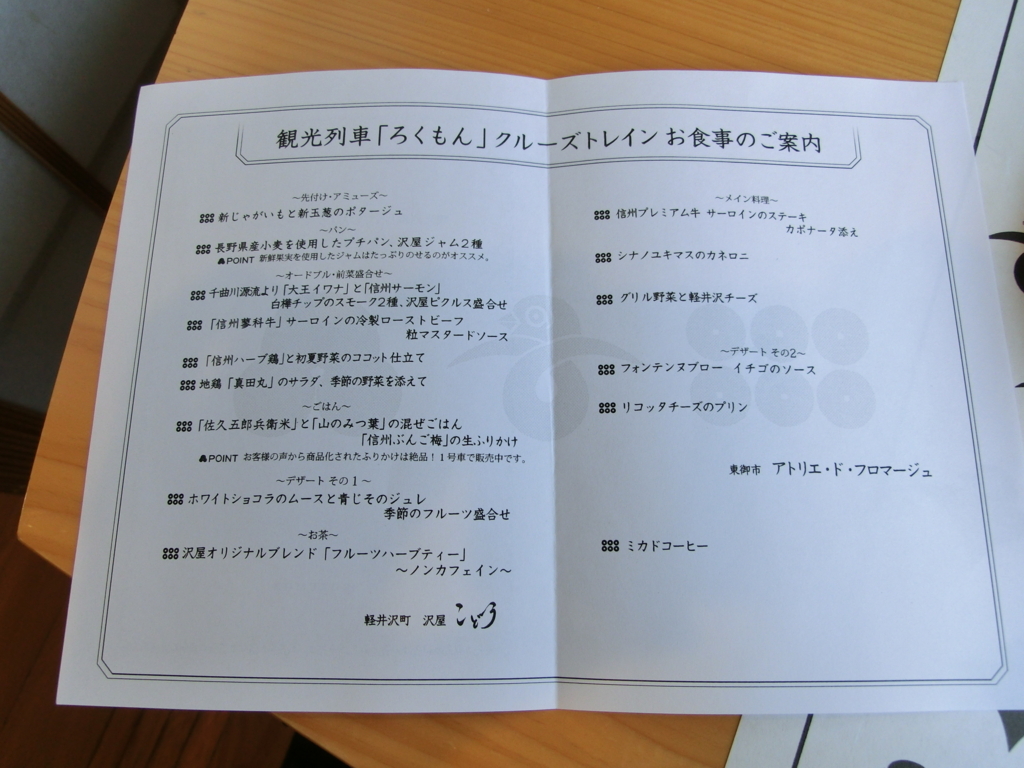 観光列車「ろくもん」クルーズトレイン お食事のご案内
～先付け・アミューズ～
新じゃがいもと新玉葱のポタージュ
～パン～
長野県産小麦を使用したプチパン、沢屋ジャム２種
POINT 新鮮果実を使用したジャムはたっぷりのせるのがオススメ。
～オードブル・前菜盛合せ～
千曲川源流より「大王イワナ」と「信州サーモン」
白樺チップのスモーク２種、沢屋ピクルス盛合せ
「信州蓼科牛」サーロインの冷製ローストビーフ
粒マスタードソース
「信州ハーブ鶏」と初夏野菜のココット仕立て
地鶏「真田丸」のサラダ、季節の野菜を添えて
～ごはん～
「佐久五郎兵衛米」と「山のみつ葉」の混ぜごはん
「信州ぶんご梅」の生ふりかけ
POINT お客様の声から商品化されたふりかけは絶品！１号車で販売中です。
～デザート その１～
ホワイトショコラのムースと青じそのジュレ
季節のフルーツ盛合せ
～お茶～
沢屋オリジナルブレンド「フルーツハーブティー」
～ノンカフェイン～
軽井沢町 沢屋 こどう
～メイン料理～
信州プレミアム牛 サーロインのステーキ
カポナータ添え
シナノユキマスのカネロニ
グリル野菜と軽井沢チーズ
～デザート その２～
フォンテンヌブロー イチゴのソース
リコッタチーズのプリン
東御市 アトリエ・ド・フロマージュ
ミカドコーヒー